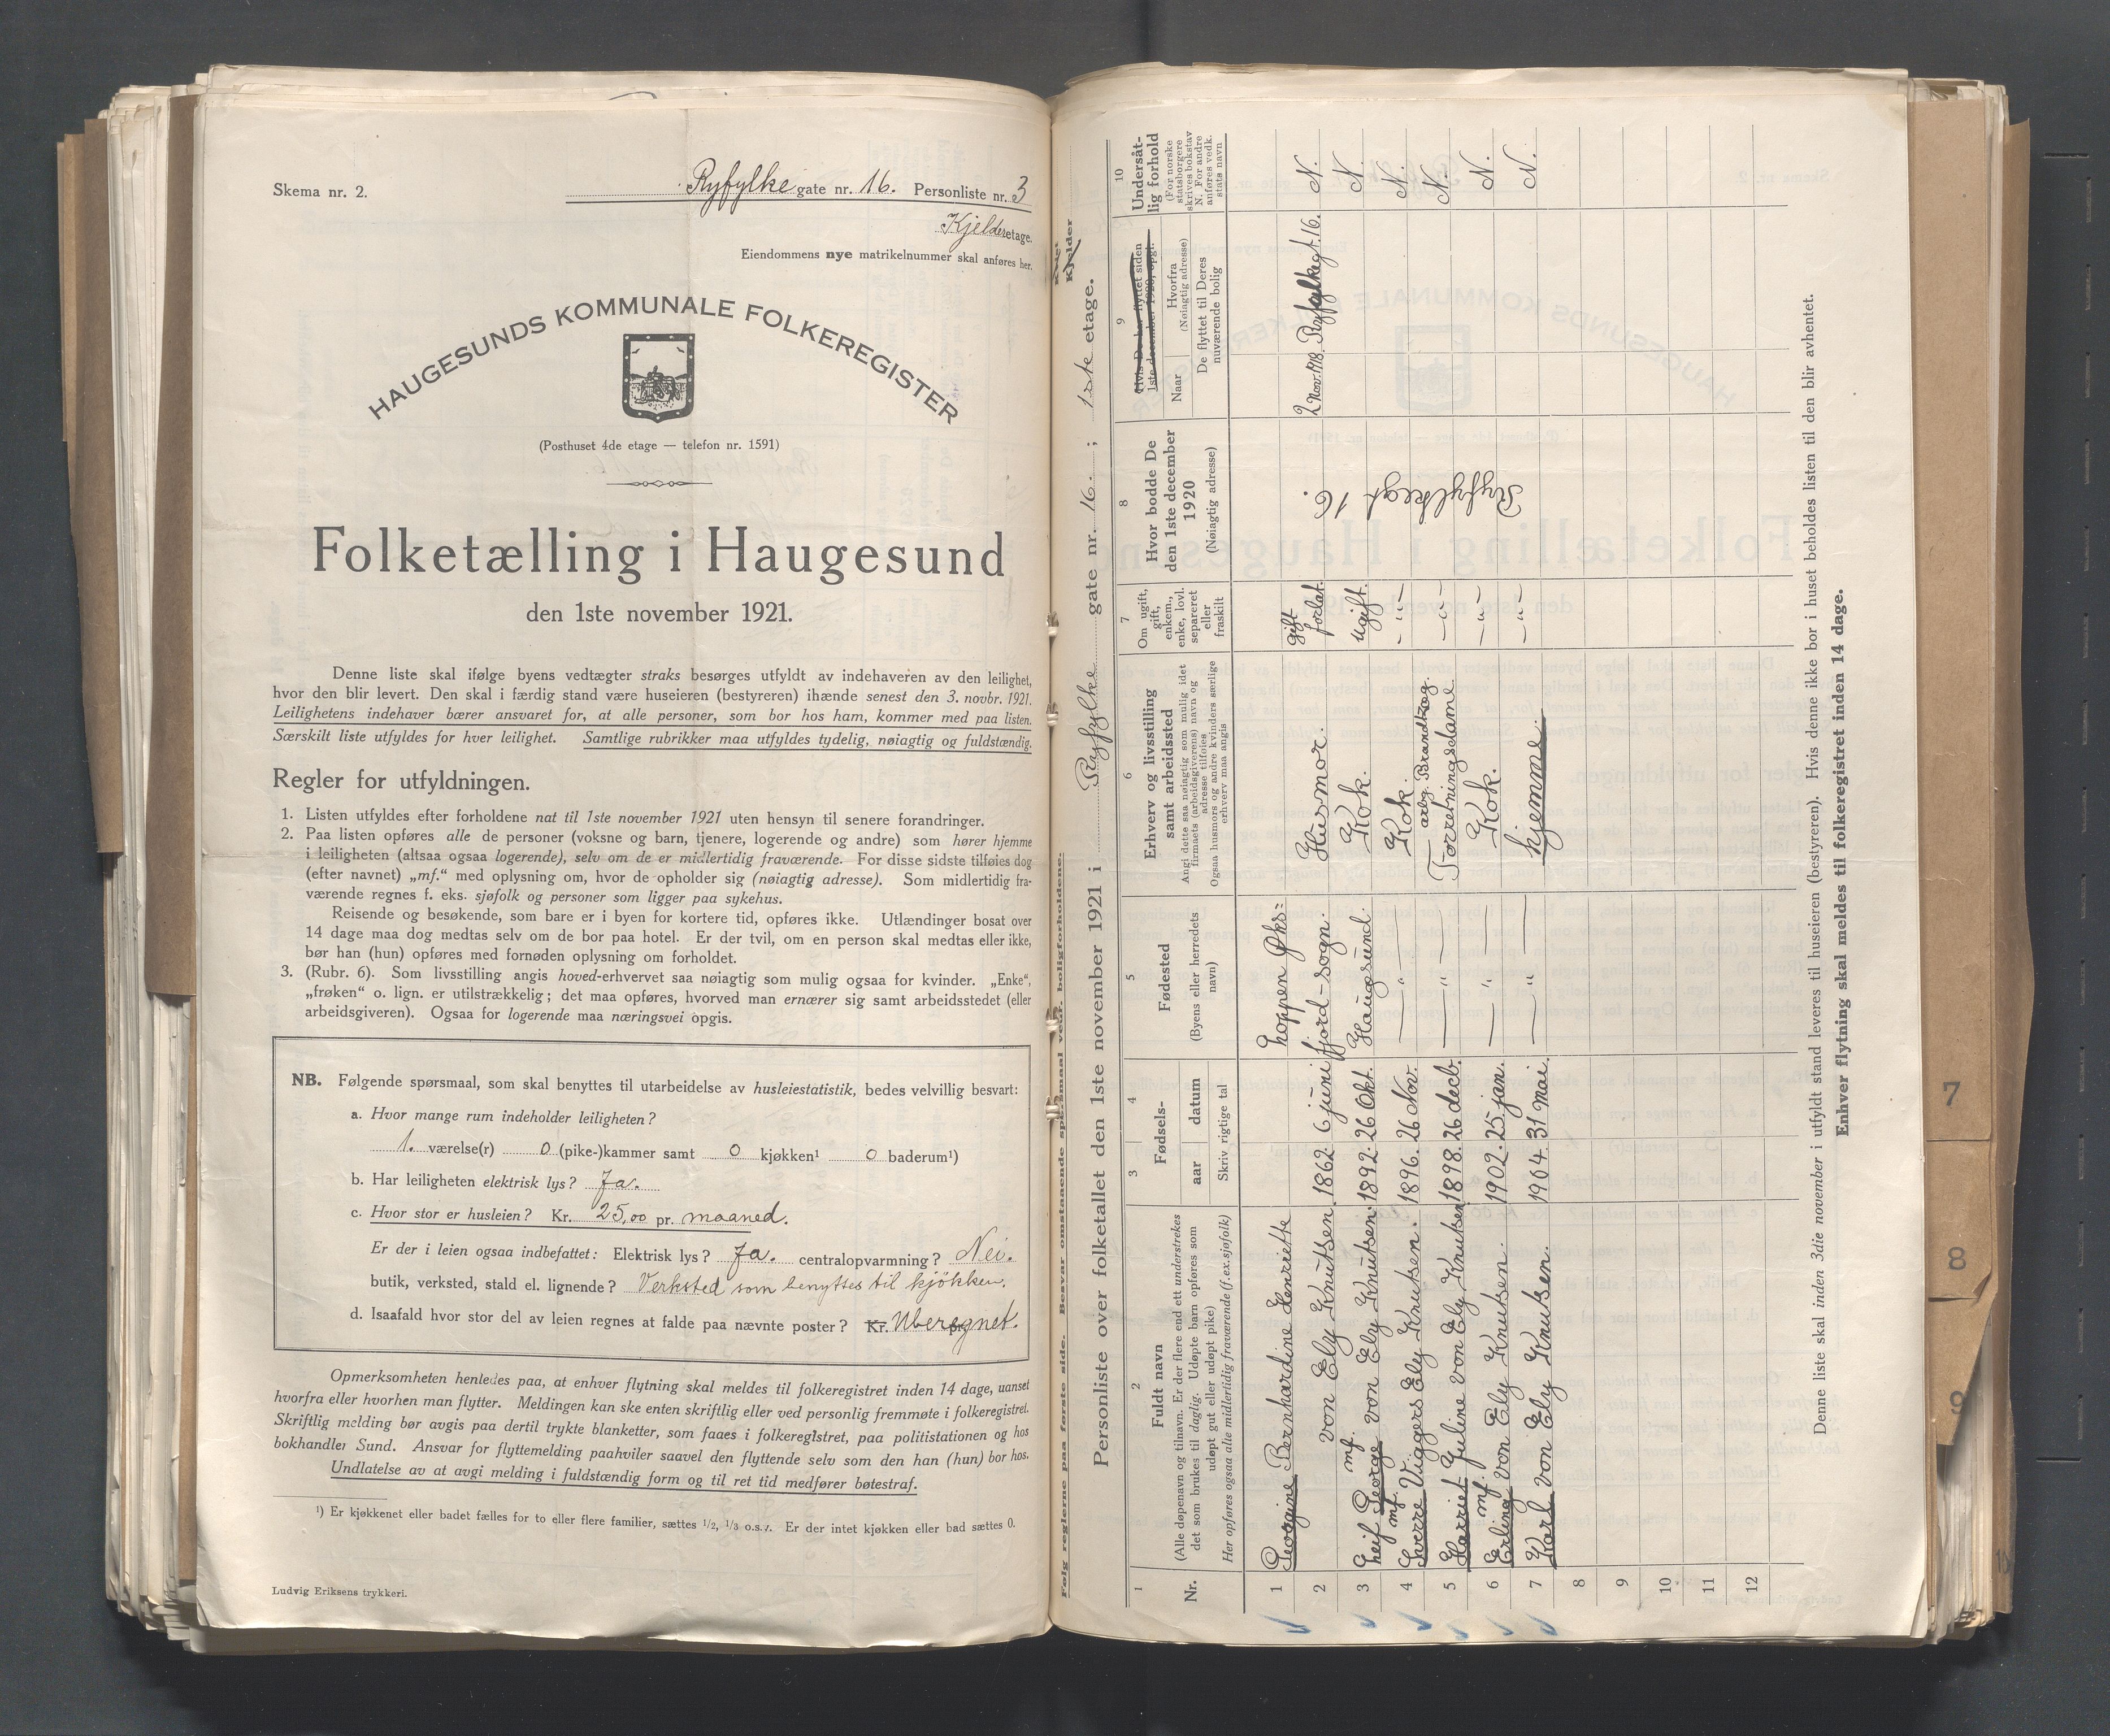 Skema nr. 2.
Ryfylke gate nr. 16. Personliste nr. 3
Kjelder etage.
Eiendommens nye matrikelnummer skal anføres her.
HAUGESUNDS KOMMUNALE FOLKEREGISTER
(Posthuset 4de etage — telefon nr. 1591)
Folketælling i Haugesund
den 1ste november 1921.
Denne liste skal ifølge byens vedtægter straks besørges utfyldt av indehaveren av den leilighet,
hvor den blir levert. Den skal i færdig stand være huseieren (bestyreren) ihænde senest den 3. novbr. 1921.
Leilighetens indehaver bærer ansvaret for, at alle personer, som bor hos ham, kommer med paa listen.
Særskilt liste utfyldes for hver leilighet. Samtlige rubrikker maa utfyldes tydelig, nøiagtig og fuldstændig.
Regler for utfyldningen.
1. Listen utfyldes efter forholdene nat til 1ste november 1921 uten hensyn til senere forandringer.
2. Paa listen opføres alle de personer (voksne og barn, tjenere, logerende og andre) som hører hjemme
i leiligheten (altsaa ogsaa logerende), selv om de er midlertidig fraværende. For disse sidste tilføies dog
(efter navnet) „mf.“ med oplysning om, hvor de opholder sig (nøiagtig adresse). Som midlertidig fra-
værende regnes f. eks. sjøfolk og personer som ligger paa sykehus.
Reisende og besøkende, som bare er i byen for kortere tid, opføres ikke. Utlændinger bosat over
14 dage maa dog medtas selv om de bor paa hotel. Er der tvil, om en person skal medtas eller ikke,
bør han (hun) opføres med fornøden oplysning om forholdet.
3. (Rubr. 6). Som livsstilling angis hoved-erhvervet saa nøiagtig som mulig ogsaa for kvinder. „Enke“,
„frøken“ o. lign. er utilstrækkelig; det maa opføres, hvorved man ernærer sig samt arbeidsstedet (eller
arbeidsgiveren). Ogsaa for logerende maa næringsvei opgis.
NB. Følgende spørsmaal, som skal benyttes til utarbeidelse av husleiestatistik, bedes velvillig besvart:
a. Hvor mange rum indeholder leiligheten?
1. værelse(r) 0 (pike-)kammer samt 0 kjøkken¹ 0 baderum¹)
b. Har leiligheten elektrisk lys? Ja.
c. Hvor stor er husleien? Kr. 25,00 pr. maaned.
Er der i leien ogsaa indbefattet: Elektrisk lys? Ja. centralopvarmning? Nei.
butik, verksted, stald el. lignende? Verksted som benyttes til kjökken.
d. Isaafald hvor stor del av leien regnes at falde paa nævnte poster? Kr. Uberegnet.
Opmerksomheten henledes paa, at enhver flytning skal meldes til folkeregistret inden 14 dage, uanset
hvorfra eller hvorhen man flytter. Meldingen kan ske enten skriftlig eller ved personlig fremmøte i folkeregistret.
Skriftlig melding bør avgis paa dertil trykte blanketter, som faaes i folkeregistret, paa politistationen og hos
bokhandler Sund. Ansvar for flyttemelding paahviler saavel den flyttende selv som den han (hun) bor hos.
Undlatelse av at avgi melding i fuldstændig form og til ret tid medfører bøtestraf.
¹) Er kjøkkenet eller badet fælles for to eller flere familier, sættes 1/2, 1/3 o.s.v. Er der intet kjøkken eller bad sættes 0.
Ludvig Eriksens trykkeri.
Følg reglerne paa første side. Besvar omstaaende spørsmaal vedr. boligforholdene.
Kjelder
Personliste over folketallet den 1ste november 1921 i Ryfylke gate nr. 16. ; 1ste etage.
1 2 3 4 5 6 7 8 9 10
Nr.
Fuldt navn
(Alle døpenavn og tilnavn. Er der flere end ett understrekes
det som brukes til daglig. Udøpte barn opføres som
udøpt gut eller udøpt pike)
Her opføres ogsaa alle midlertidig fraværende (f.ex.sjøfolk)
Fødsels-
aar datum
Skriv rigtige tal
Fødested
(Byens eller herredets
navn)
Erhverv og livsstilling
samt arbeidssted
Angi dette saa nøiagtig som mulig idet
firmaets (arbeidsgiverens) navn og
adresse tilføies
Ogsaa husmors og andre kvinders særlige
erhverv maa angis
Om ugift,
gift,
enkem.,
enke, lovl.
separeret
eller
fraskilt
Hvor bodde De
den 1ste december
1920
(Nøiagtig adresse)
Hvis De har flyttet siden
1ste december 1920, opgi:
Naar Hvorfra
(Nøiagtig adresse)
De flyttet til Deres
nuværende bolig
Undersåt-
lig forhold
(For norske
statsborgere
skrives bokstav
N. For andre
anføres vedk.
stats navn
1 Georgine Bernhardine Henriette hoppen Øks= gift
2 von Ely Knutsen. 1862. 6 juni fjord-sogn. Husmor. forlat. 2 nov. 1918. Ryfylkegt. 16. N.
mf.
3 Leif George von Ely Knutsen. 1892. 26 Okt. Haugesund. Kok. ugift. N.
mf.
4 Sverre Viggers Ely Knutsen. 1896. 26 Nov. — „ — Kok. — „ — N.
arbg. Brandtzæg.
5 Harriet Juline von Ely Knutsen 1898. 26 decb. — „ — Forretningsdame — „ — N.
mf.
6 Erling von Ely Knutsen. 1902. 25 jan. — „ — Kok. — „ — N.
7 Karl von Ely Knutsen. 1904. 31 mai. — „ — hjemme. — „ — N.
Ryfylkegt 16.
8
9
10
11
12
Denne liste skal inden 3die november i utfyldt stand leveres til huseieren (bestyreren). Hvis denne ikke bor i huset beholdes listen til den blir avhentet.
Enhver flytning skal meldes til folkeregistret inden 14 dage.
7
8
9